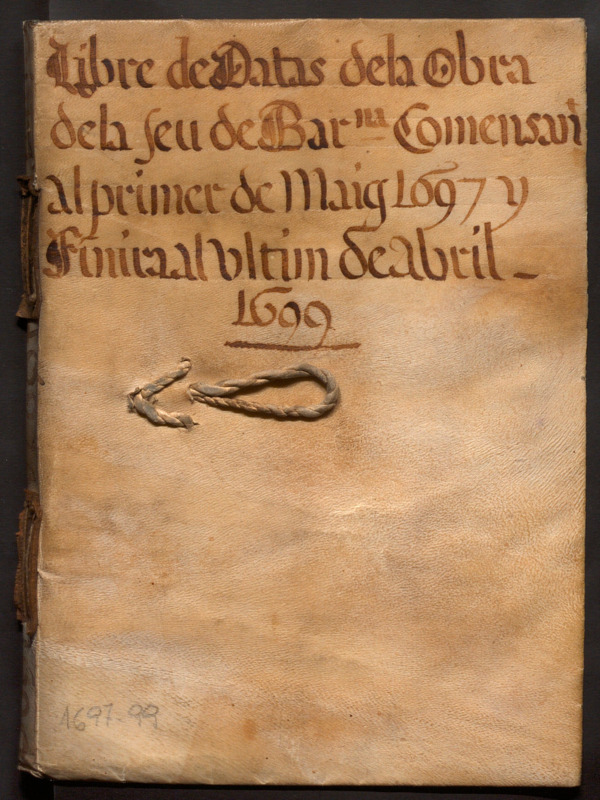 Libre de Datas dela Obra
dela seu de Bar^na Comensan
al primer de Maig 1697 y
Finira al Vltim de Abril -
1699
1697-99